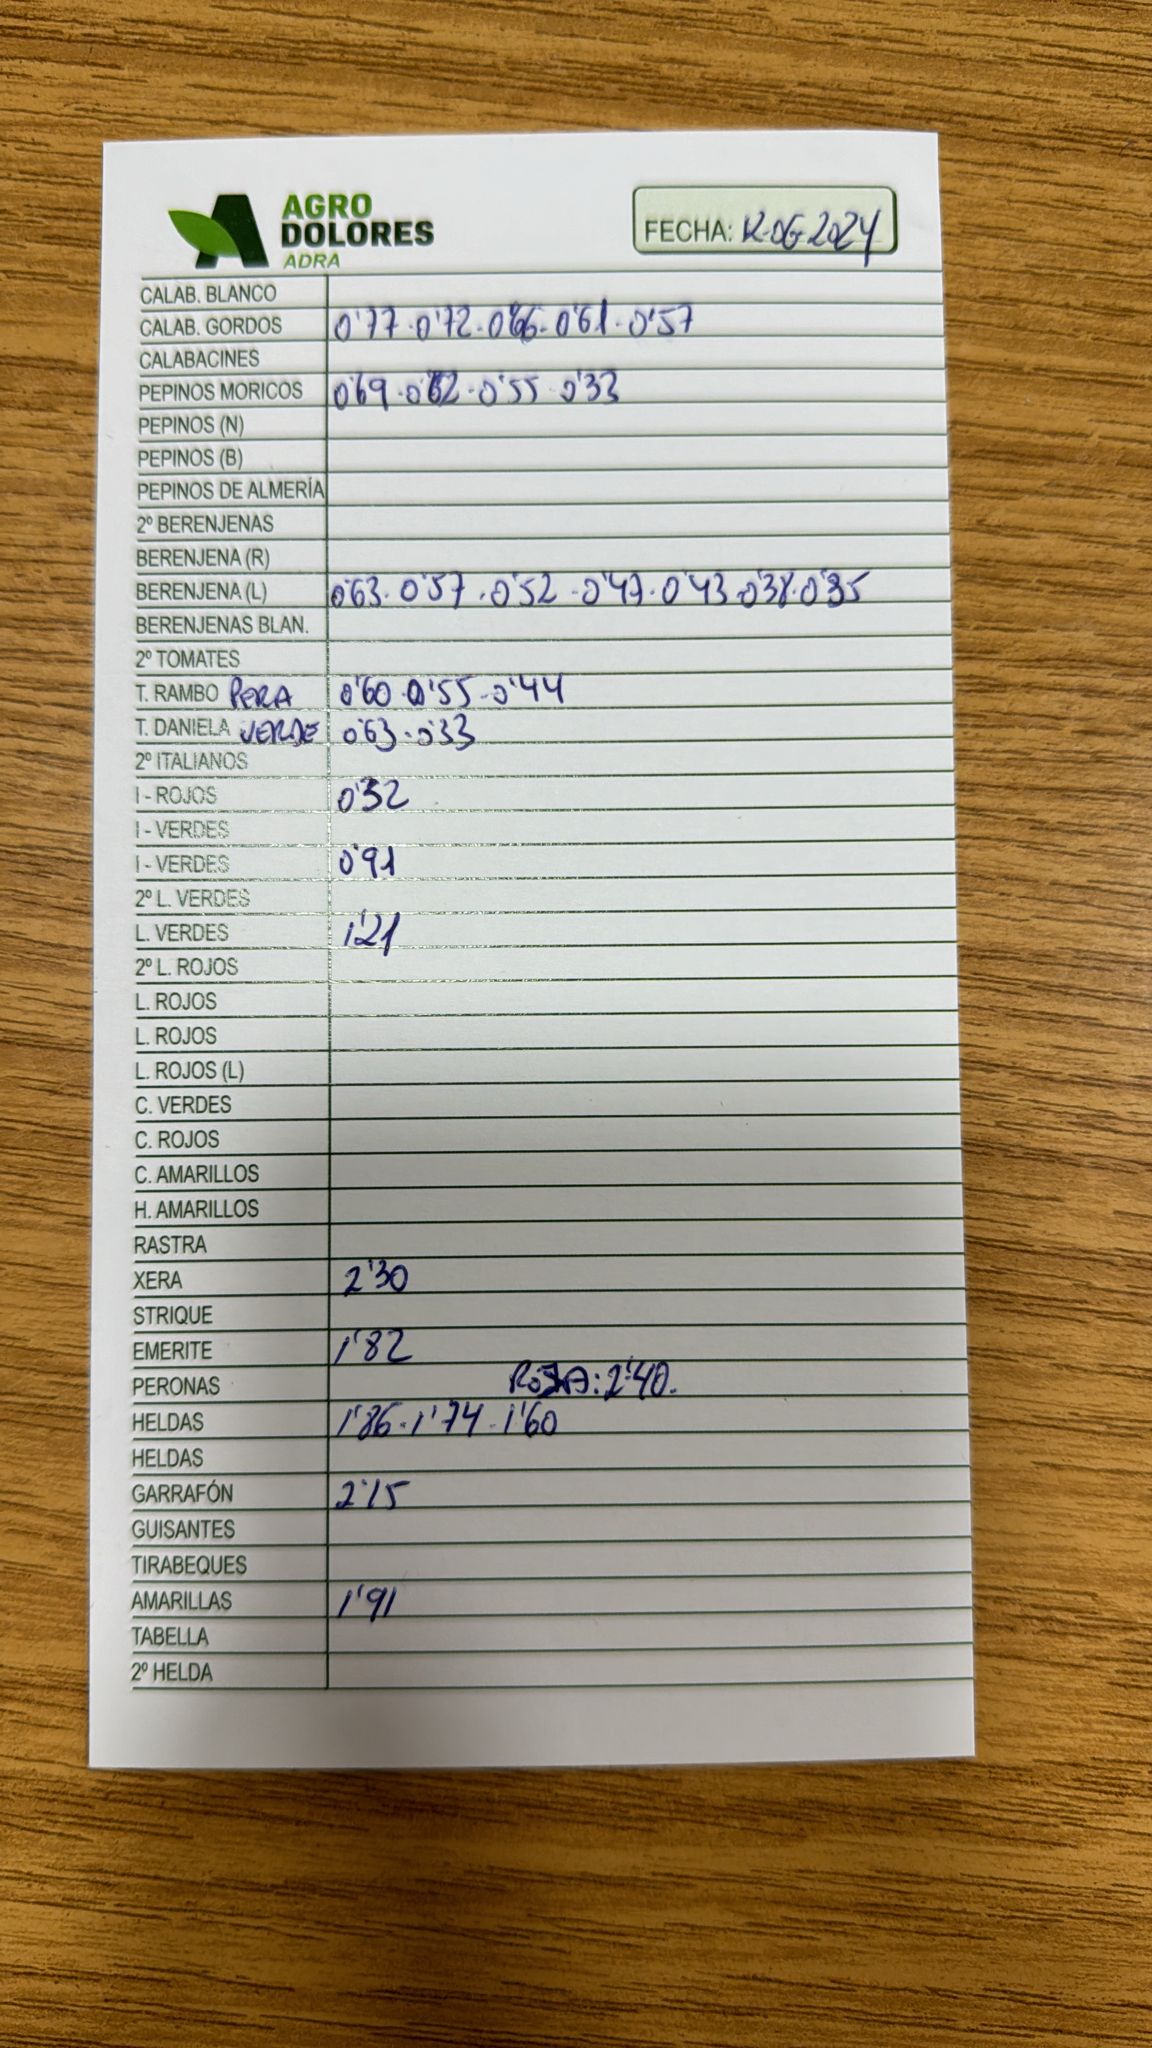 AGRO
DOLORES
ADRA
FECHA: 12-06-2024
CALAB. BLANCO
CALAB. GORDOS 0'77-0'72-0'66-0'61-0'57
CALABACINES
PEPINOS MORICOS 0'69-0'62-0'55-0'33
PEPINOS (N)
PEPINOS (B)
PEPINOS DE ALMERÍA
2º BERENJENAS
BERENJENA (R)
BERENJENA (L) 0'63-0'57-0'52-0'47-0'43-0'38-0'35
BERENJENAS BLAN.
2º TOMATES
T. RAMBO PERA 0'60-0'55-0'44
T. DANIELA VERDE 0'63-0'33
2º ITALIANOS
I - ROJOS 0'32
I - VERDES
I - VERDES 0'91
2º L. VERDES
L. VERDES 1'21
2º L. ROJOS
L. ROJOS
L. ROJOS
L. ROJOS (L)
C. VERDES
C. ROJOS
C. AMARILLOS
H. AMARILLOS
RASTRA
XERA 2'30
STRIQUE
EMERITE 1'82
PERONAS ROJA: 2'40.
HELDAS 1'86-1'74-1'60
HELDAS
GARRAFÓN 2'15
GUISANTES
TIRABEQUES
AMARILLAS 1'91
TABELLA
2º HELDA